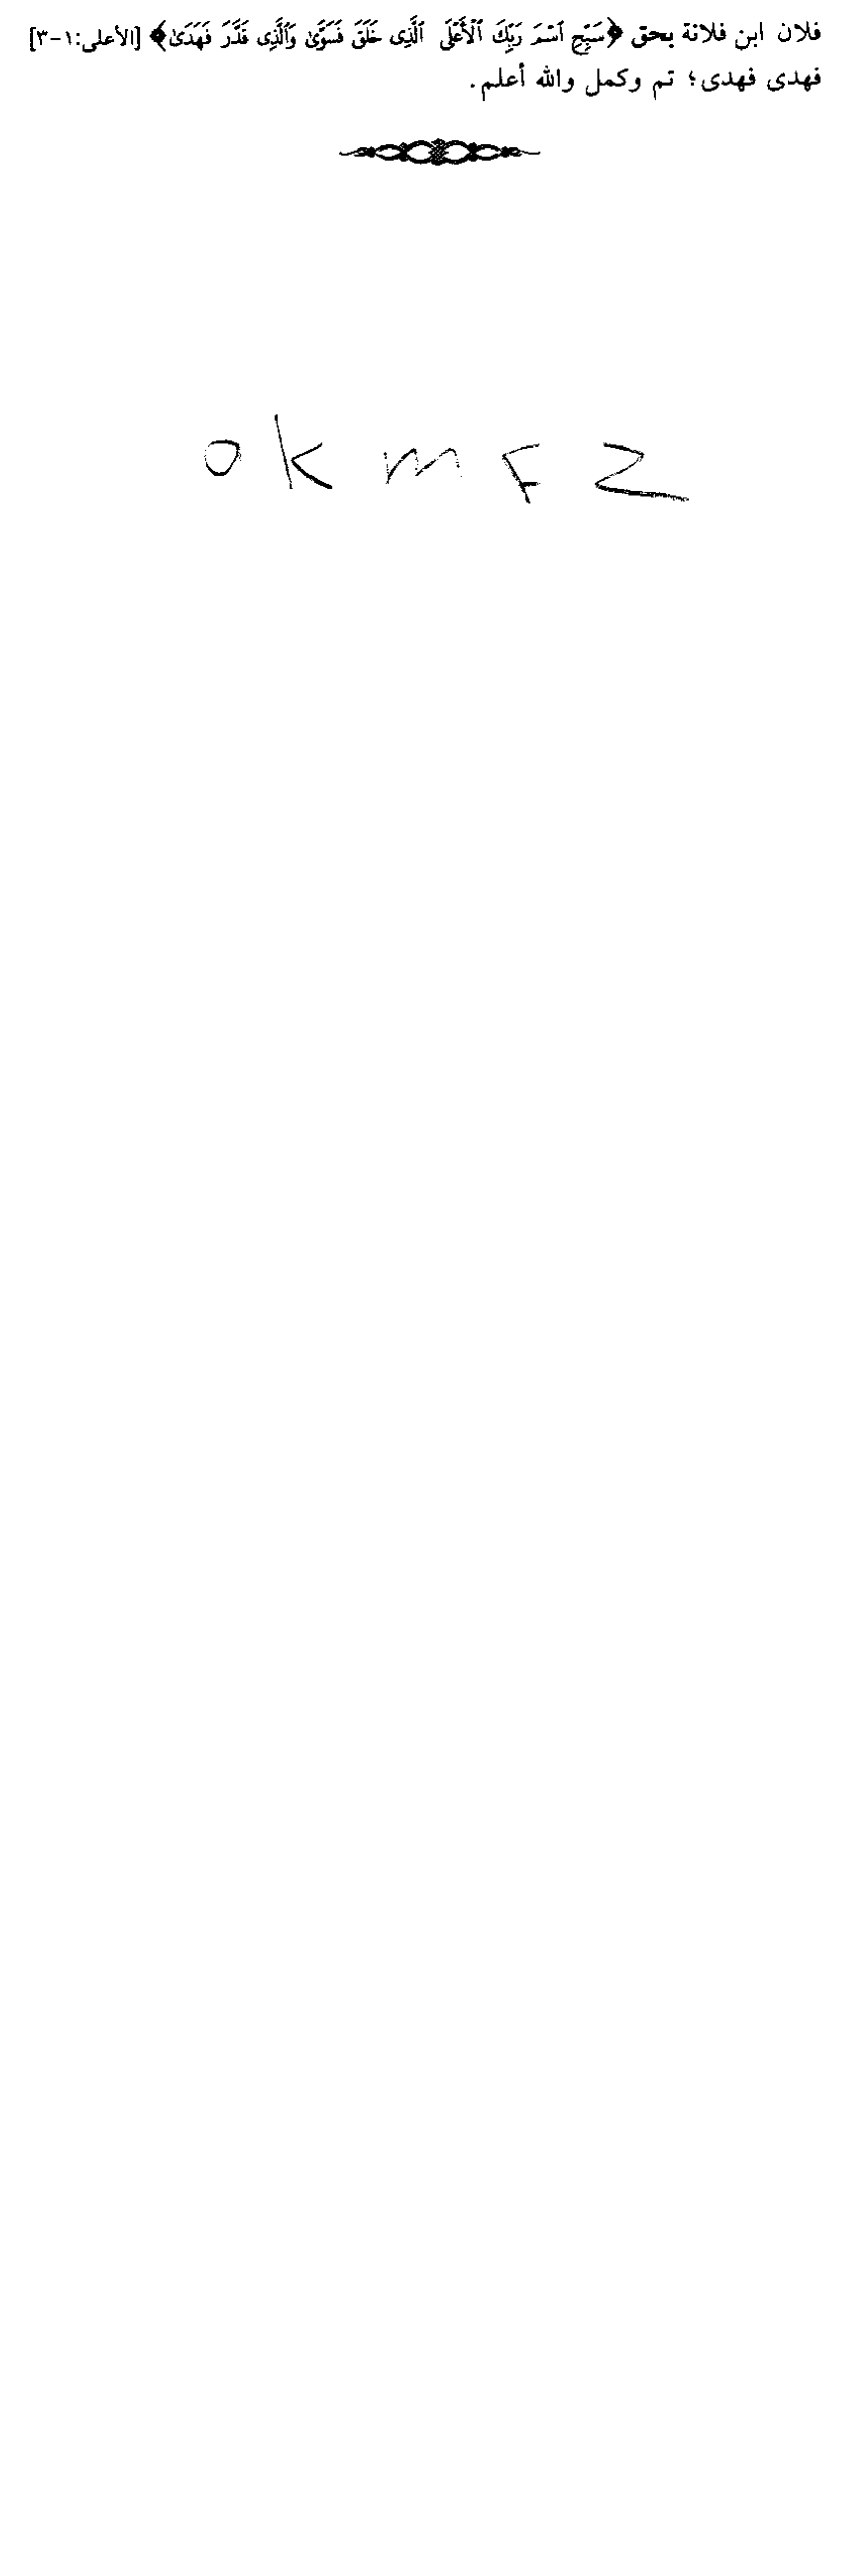 فلان ابن فلانة بحق ﴿سَبِّحِ ٱسْمَ رَبِّكَ ٱلْأَعْلَى ٱلَّذِى خَلَقَ فَسَوَّىٰ وَٱلَّذِى قَدَّرَ فَهَدَىٰ﴾ [الأعلى:١-٣]
فهدى فهدى؛ تم وكمل والله أعلم.
o k m F z